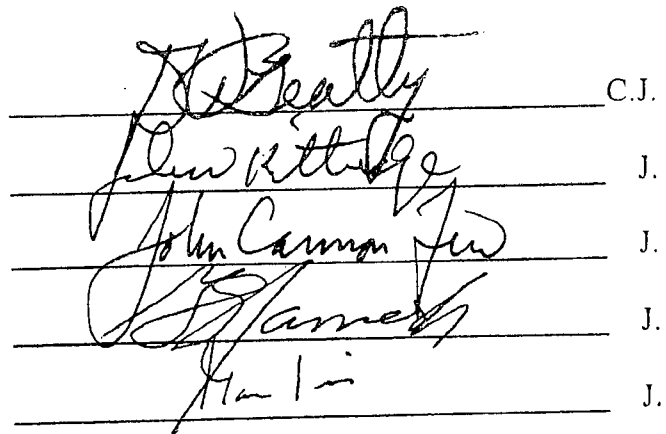 Beatty C.J.
John Kittredge J.
John Cannon Few J.
James J.
J.